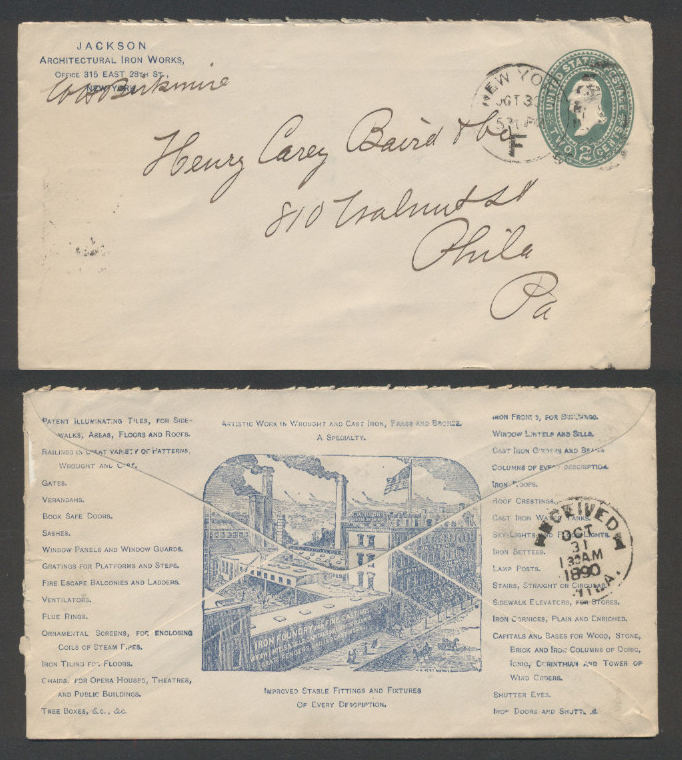 JACKSON
ARCHITECTURAL IRON WORKS,
OFFICE 315 EAST 28TH ST.
NEW YORK.
NEW YO
OCT 3
F
UNITED STATES POSTAGE
TWO CENTS
2
Henry Carey Baird & Co
810 Walnut St
Phila
Pa
PATENT ILLUMINATING TILES, FOR SIDE-
WALKS, AREAS, FLOORS AND ROOFS.
RAILINGS IN GREAT VARIETY OF PATTERNS,
WROUGHT AND CAST.
GATES.
VERANDAHS.
BOOK SAFE DOORS.
SASHES.
WINDOW PANELS AND WINDOW GUARDS.
GRATINGS FOR PLATFORMS AND STEPS.
FIRE ESCAPE BALCONIES AND LADDERS.
VENTILATORS.
FLUE RINGS.
ORNAMENTAL SCREENS, FOR ENCLOSING
COILS OF STEAM PIPES.
IRON TILING FOR FLOORS.
CHAIRS, FOR OPERA HOUSES, THEATRES,
AND PUBLIC BUILDINGS.
TREE BOXES, &c., &c.
ARTISTIC WORK IN WROUGHT AND CAST IRON, BRASS AND BRONZE.
A SPECIALTY.
IRON FOUNDRY FOR FINE CASTINGS
IMPROVED STABLE FITTINGS AND FIXTURES
OF EVERY DESCRIPTION.
IRON FRONTS, FOR BUILDINGS.
WINDOW LINTELS AND SILLS.
CAST IRON GIRDERS AND BEAMS
COLUMNS OF EVERY DESCRIPTION.
IRON ROOFS.
ROOF CRESTINGS.
CAST IRON WATER TANKS.
SKY-LIGHTS AND FLOOR LIGHTS.
IRON SETTEES.
LAMP POSTS.
STAIRS, STRAIGHT OR CIRCULAR.
SIDEWALK ELEVATORS, FOR STORES.
IRON CORNICES, PLAIN AND ENRICHED.
CAPITALS AND BASES FOR WOOD, STONE,
BRICK AND IRON COLUMNS OF DORIC,
IONIC, CORINTHIAN AND TOWER OF
WIND ORDERS.
SHUTTER EYES.
IRON DOORS AND SHUTTERS
RECEIVED
OCT
31
1890
PHILA.